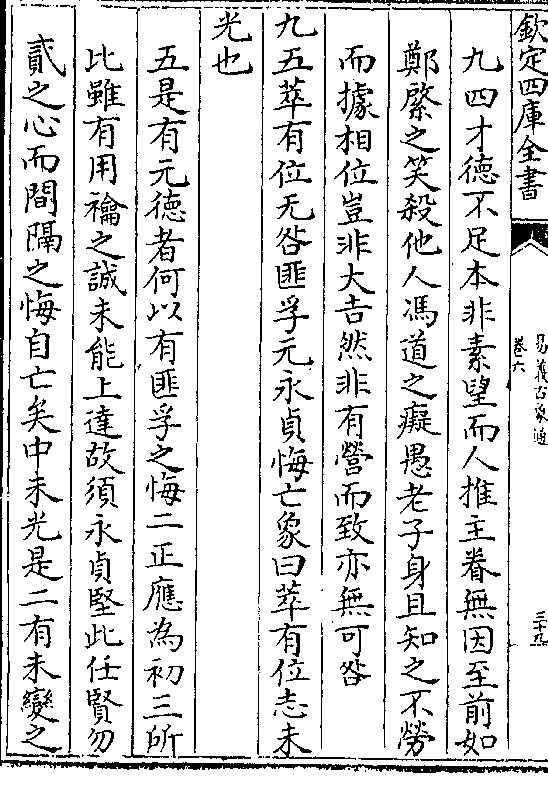 欽定四庫全書
易義古象通
卷六
三十九
九四才德不足本非素望而人推主眷無因至前如
鄭綮之笑殺他人馮道之癡愚老子身且知之不勞
而據相位豈非大吉然非有營而致亦無可咎
九五萃有位无咎匪孚元永貞悔亡象曰萃有位志未
光也
五是有元德者何以有匪孚之悔二正應為初三所
比雖有用禴之誠未能上達故須永貞堅此任賢勿
貳之心而間隔之悔自亡矣中未光是二有未變之